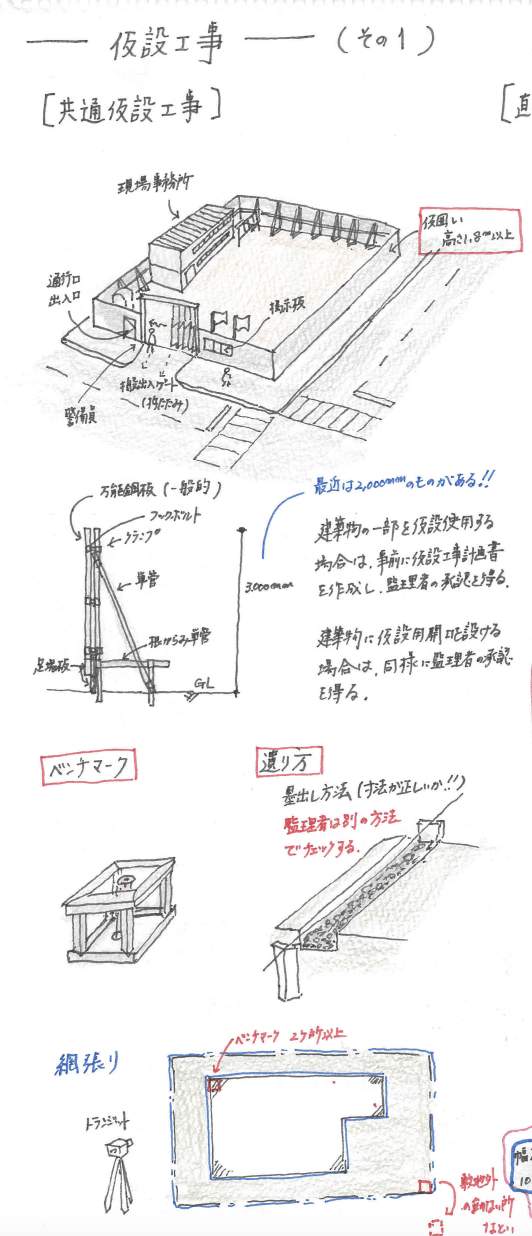 仮設工事 (その1)
[共通仮設工事]
[直
現場事務所
仮囲い
高さ1.8m以上
通行口
出入口
掲示板
搬出入ゲート
(折たたみ)
警備員
万能鋼板 (一般的)
フックボルト
クランプ
単管
根がらみ単管
足場板
GL
3,000mm
最近は2,000mmのものがある!!
建築物の一部を仮設使用する
場合は、事前に仮設工事計画書
を作成し、監理者の承認を得る.
建築物に仮設用開口を設ける
場合は、同様に監理者の承認
を得る.
ベンチマーク
遣り方
墨出し方法 (寸法が正しいか!!)
監理者は別の方法
でチェックする.
縄張り
ベンチマーク 2ヶ所以上
トランシット
敷地外
の動かない所
などに
幅
10